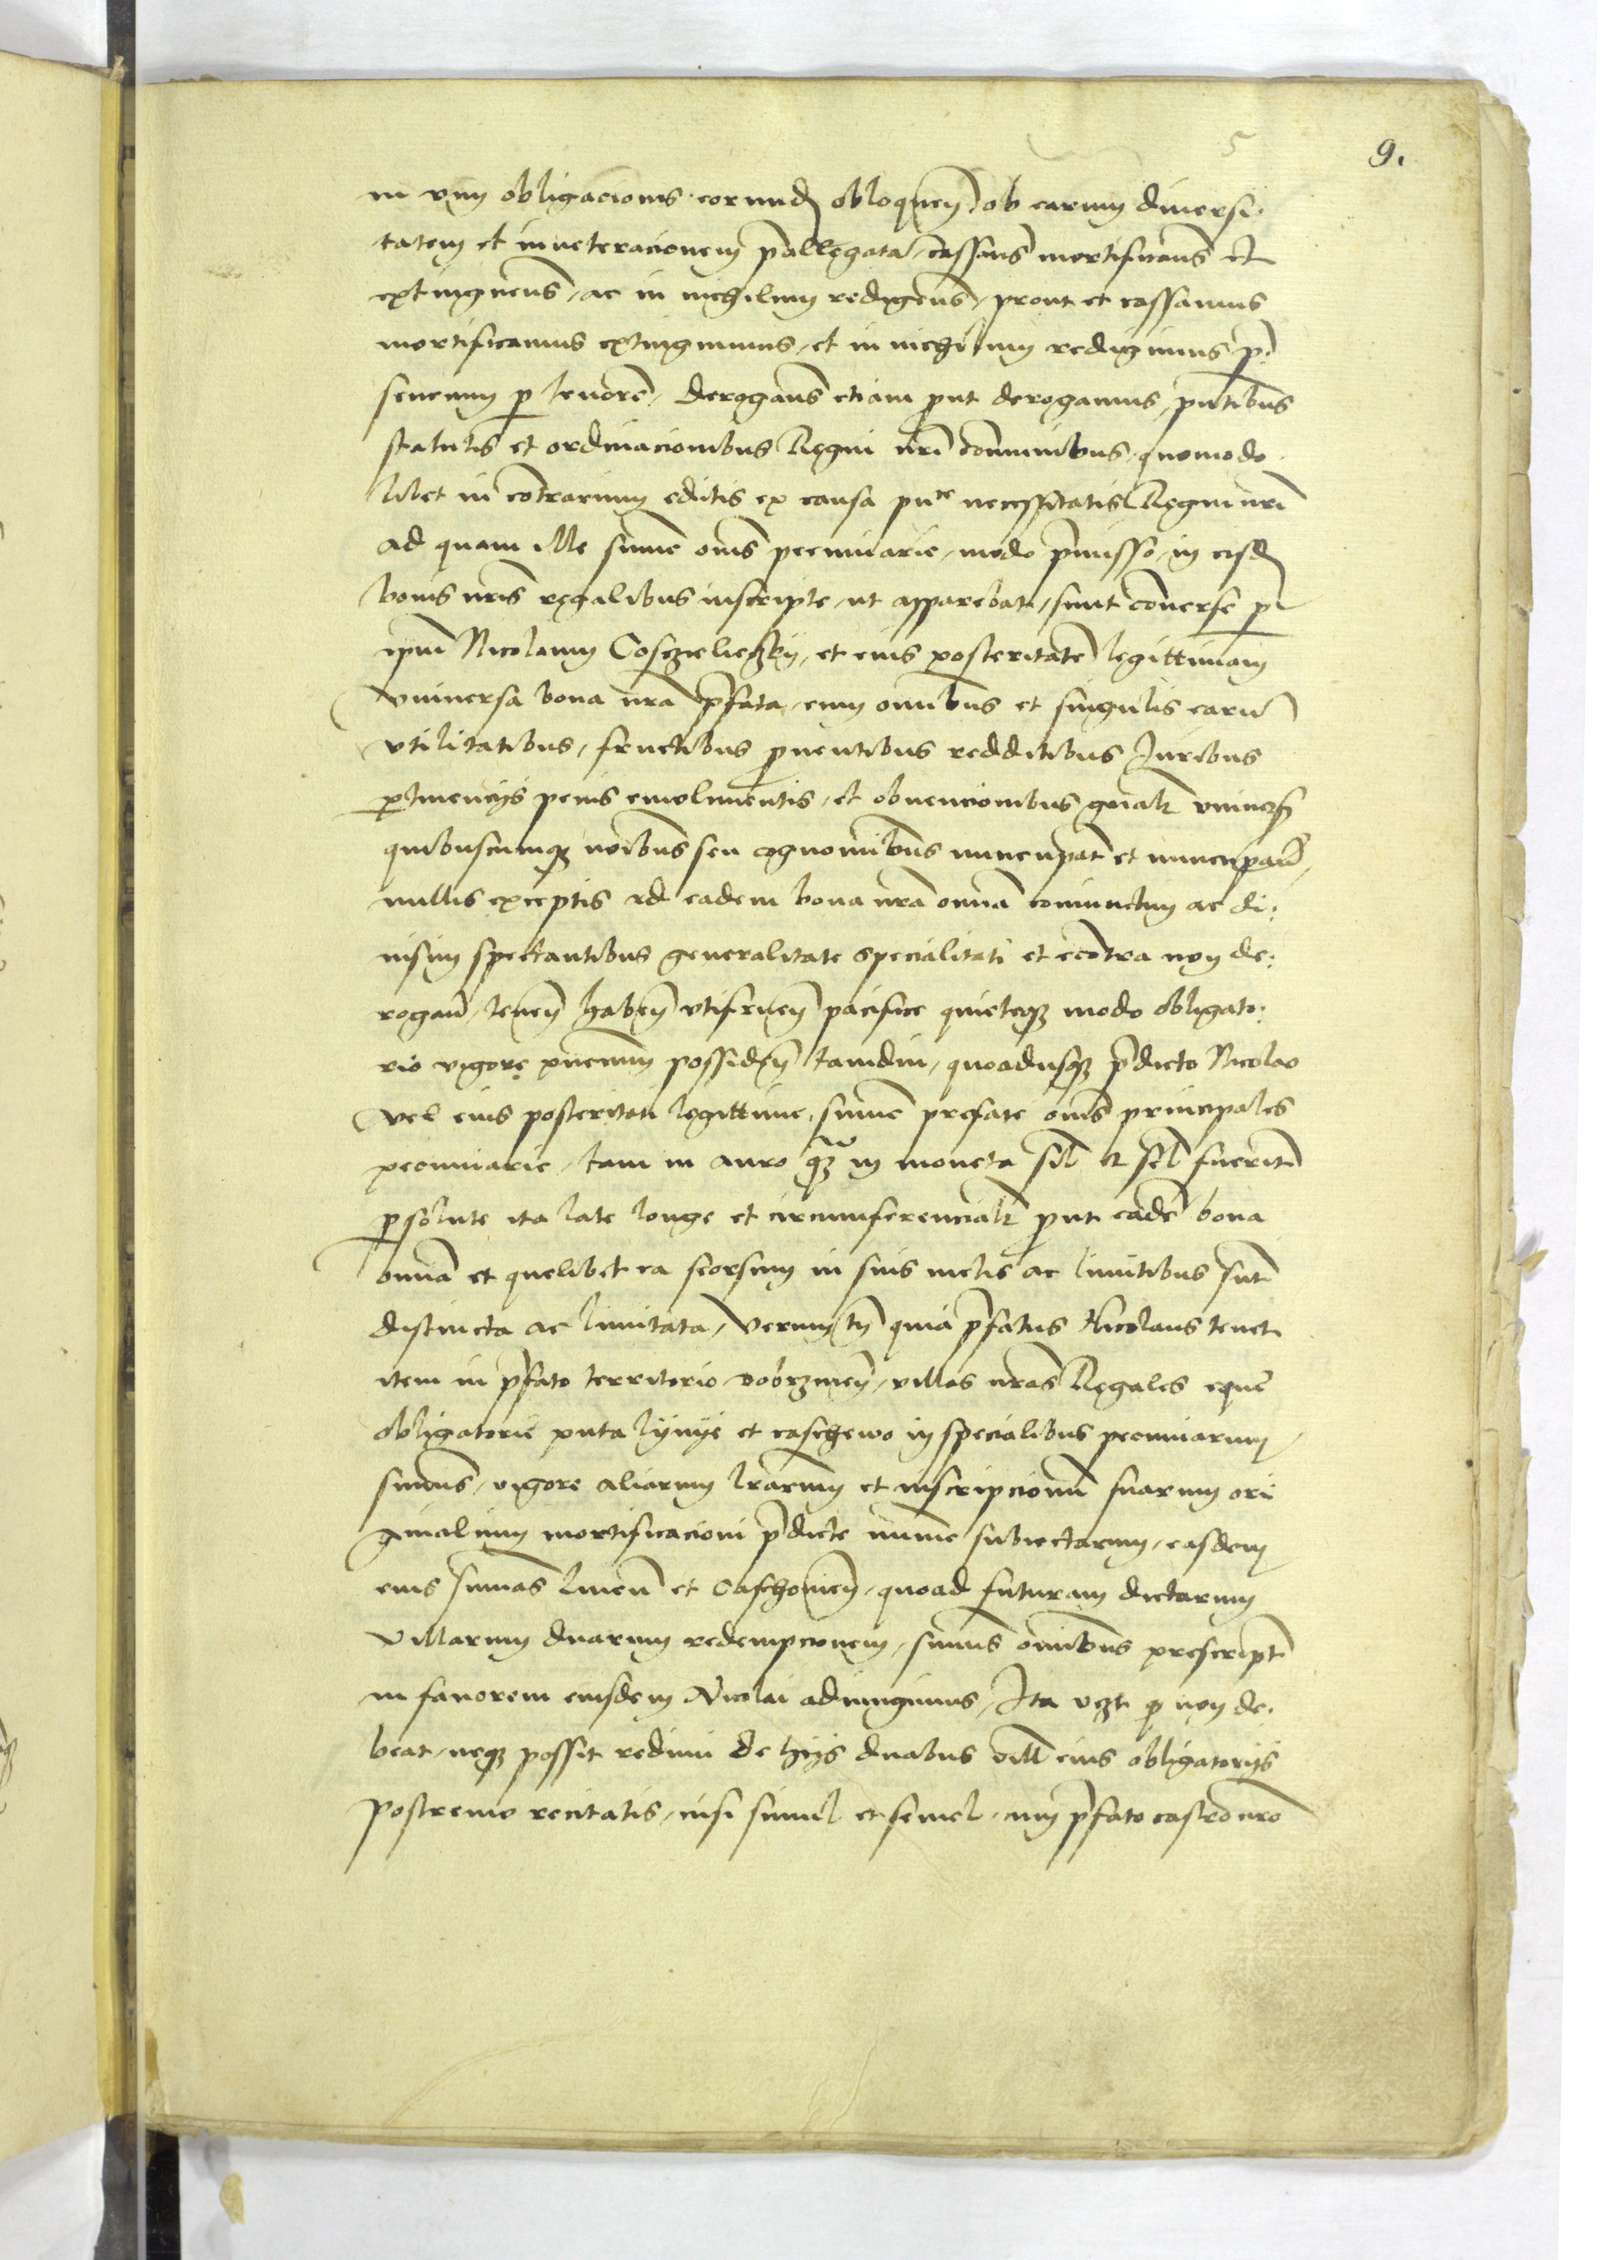 5
9.
in vim obligacionis eorund obloquen ob earum diuersi-
tatem et inueteracionem pallegata cassans mortificans et
extinguens, ac in nichilum redigens, prout et cassamus
mortificamus extinguimus, et in nichilum redigimus p-
sencium p tenore, derogans etiam put derogamus, pntibus
statutis et ordinacionibus Regni nri communibus, quomodo-
libet in contrarium editis ex causa pnte necessitatis Regni nri
ad quam ille summe oms pecuniarie, modo pmisso, in eisd
bonis nris regalibus inscripte, ut apparebat, sunt conuerse p
ipm Nicolaum Cosczieliezky, et eius posteritate legittimam
vniuersa bona nra pfata, cum omibus et singulis earu
vtilitatibus, fructibus puentibus redditibus Juribus
ptinencys penis emolimentis, et obuencionibus gnalr vniuers
quibuscumqz noibus seu cognomibus nuncupat et nuncupan,
nullis exceptis ad eadem bona nra omia coniunctim ac di-
uisim spectantibus generalitate specialitati et econtra non de-
rogan, tenen haben vtifruen pacifice quieteqz modo obligato-
rio vigore pncium possiden tamdiu, quoadusqz pdicto Nicolao
vel eius posteritati legittime, summe prefate oms principales
pecuniarie, tam in auro qz in moneta sil et sel fuerit
psolute ita late longe et circumferencialr put eade bona
omia et quelibet ea seorsum in suis metis ac limitibus sunt
distincta ac limitata, verum tn quia pfatus Nicolaus tenet
item in pfato territorio dobrzinen, villas nras Regales eque
obligatorie puta lynye et caschewo in specialibus pecuniarum
summis, vigore aliarum lrarum et inscripcionu suarum ori
ginalium mortificacioni pdicte nunc subiectarum, easdem
eius summas linen et Caschouien, quoad futuram dictarum
villarum duarum redempcionem, summis omibus prescript
in fauorem eiusdem Nicolai adiungimus, Ita vzt q non de-
beat, neqz possit redimi de hys duabus vill eius obligatorys
postremo recitatis, nisi simul et semel, cum pfato castro nro